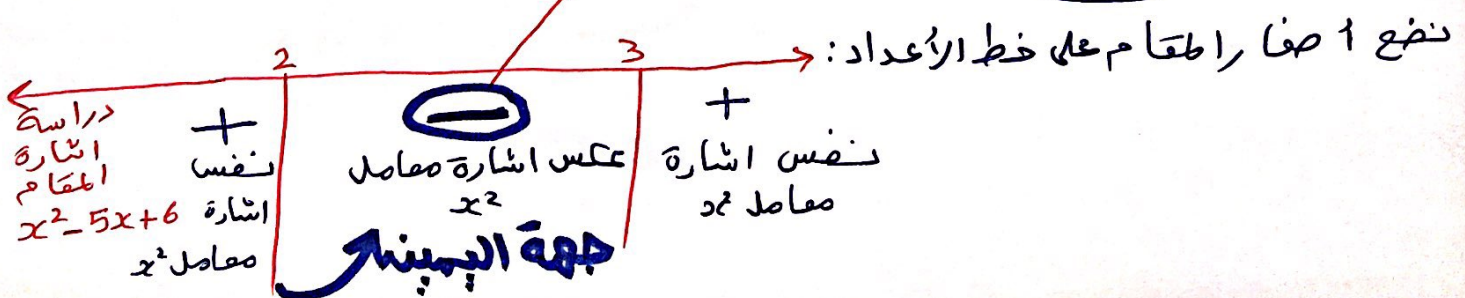 نضع أصفار المقام على خط الأعداد:
2 3
+ − +
نفس اشارة معامل x²
عكس اشارة معامل x²
نفس اشارة معامل x²
دراسة اشارة المقام
x²-5x+6
جهة اليمين